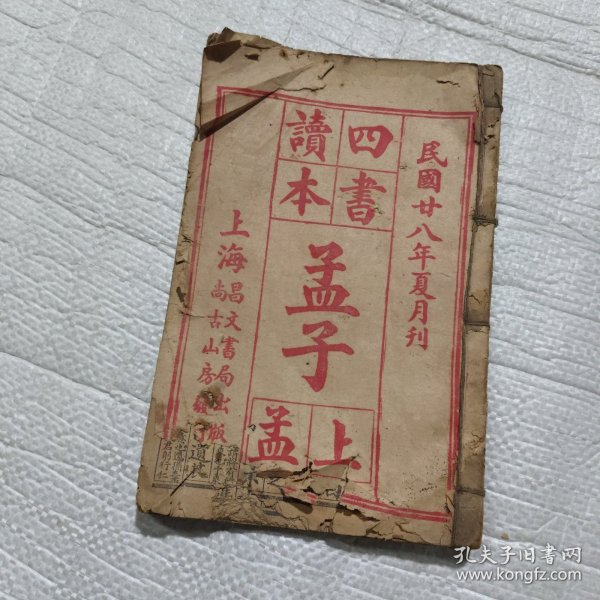 民國廿八年夏月刊
四書
讀本
孟子
上
孟
上海
昌文書局出版
尚古山房發行
孔夫子旧书网
www.kongfz.com